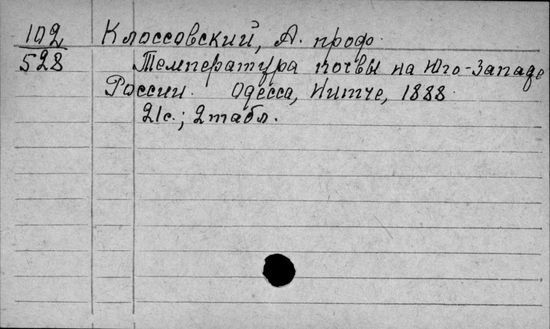 102 Клоссовский, А. проф.
528 Температура почвы на Юго-Западе
России. Одесса, Нитче, 1888
21с.; 2 табл.